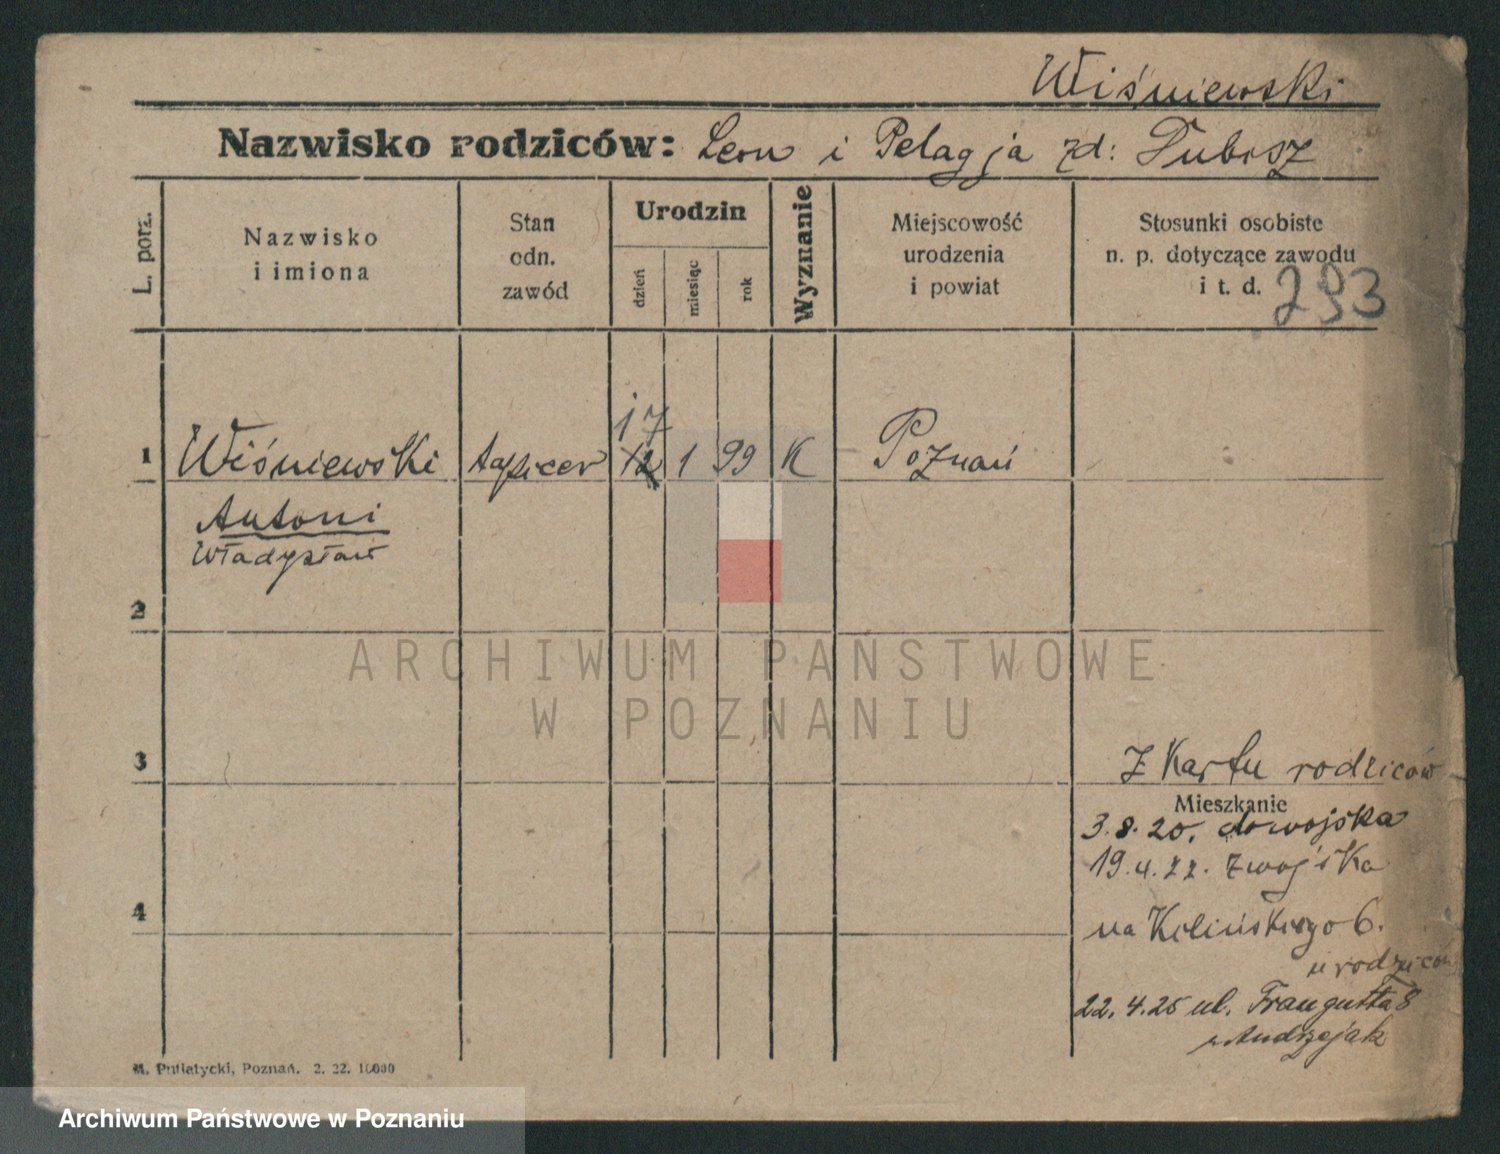 Wiśniewski
Nazwisko rodziców: Leon i Pelagja zd: Tubisz
L. porz.
Nazwisko
i imiona
Stan
odn.
zawód
Urodzin
dzień
miesiąc
rok
Wyznanie
Miejscowość
urodzenia
i powiat
Stosunki osobiste
n. p. dotyczące zawodu
i t. d.
293
17
1 Wiśniewski tapicer 12 1 99 K Poznań
Antoni
Władysław
2
ARCHIWUM PAŃSTWOWE
W POZNANIU
3
Z Karty rodziców
Mieszkanie
3.8.20. do wojska
19.4.22. z wojska
4
na Kilińskiego 6.
u rodziców
22.4.25 ul. Traugutta 8
u Andrzejak
M. Putiatycki, Poznań. 2. 22. 10000
Archiwum Państwowe w Poznaniu